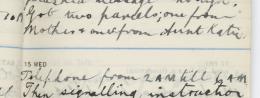 message
Got two parcels; one from
Mother & one from Aunt Katie.
15 WED
Telephone from 2 AM till 6 AM
Then signalling, instructor